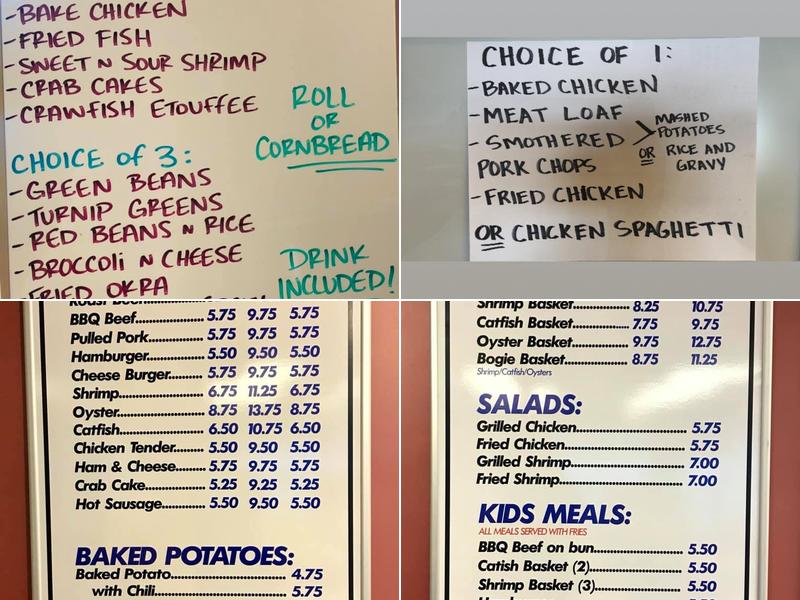 -BAKE CHICKEN
-FRIED FISH
-SWEET N SOUR SHRIMP
-CRAB CAKES
-CRAWFISH ETOUFFEE
ROLL
OR
CORNBREAD
CHOICE of 3:
-GREEN BEANS
-TURNIP GREENS
-RED BEANS N RICE
-BROCCOLi N CHEESE
-FRIED OKRA
DRINK
INCLUDED!
CHOICE OF 1:
-BAKED CHICKEN
-MEAT LOAF
-SMOTHERED
PORK CHOPS
MASHED
POTATOES
OR RICE AND
GRAVY
-FRIED CHICKEN
OR CHICKEN SPAGHETTI
BBQ Beef 5.75 9.75 5.75
Pulled Pork 5.75 9.75 5.75
Hamburger 5.50 9.50 5.50
Cheese Burger 5.75 9.75 5.75
Shrimp 6.75 11.25 6.75
Oyster 8.75 13.75 8.75
Catfish 6.50 10.75 6.50
Chicken Tender 5.50 9.50 5.50
Ham & Cheese 5.75 9.75 5.75
Crab Cake 5.25 9.25 5.25
Hot Sausage 5.50 9.50 5.50
BAKED POTATOES:
Baked Potato 4.75
with Chili 5.75
Shrimp Basket 8.25 10.75
Catfish Basket 7.75 9.75
Oyster Basket 9.75 12.75
Bogie Basket 8.75 11.25
Shrimp/Catfish/Oysters
SALADS:
Grilled Chicken 5.75
Fried Chicken 5.75
Grilled Shrimp 7.00
Fried Shrimp 7.00
KIDS MEALS:
ALL MEALS SERVED WITH FRIES
BBQ Beef on bun 5.50
Catish Basket (2) 5.50
Shrimp Basket (3) 5.50